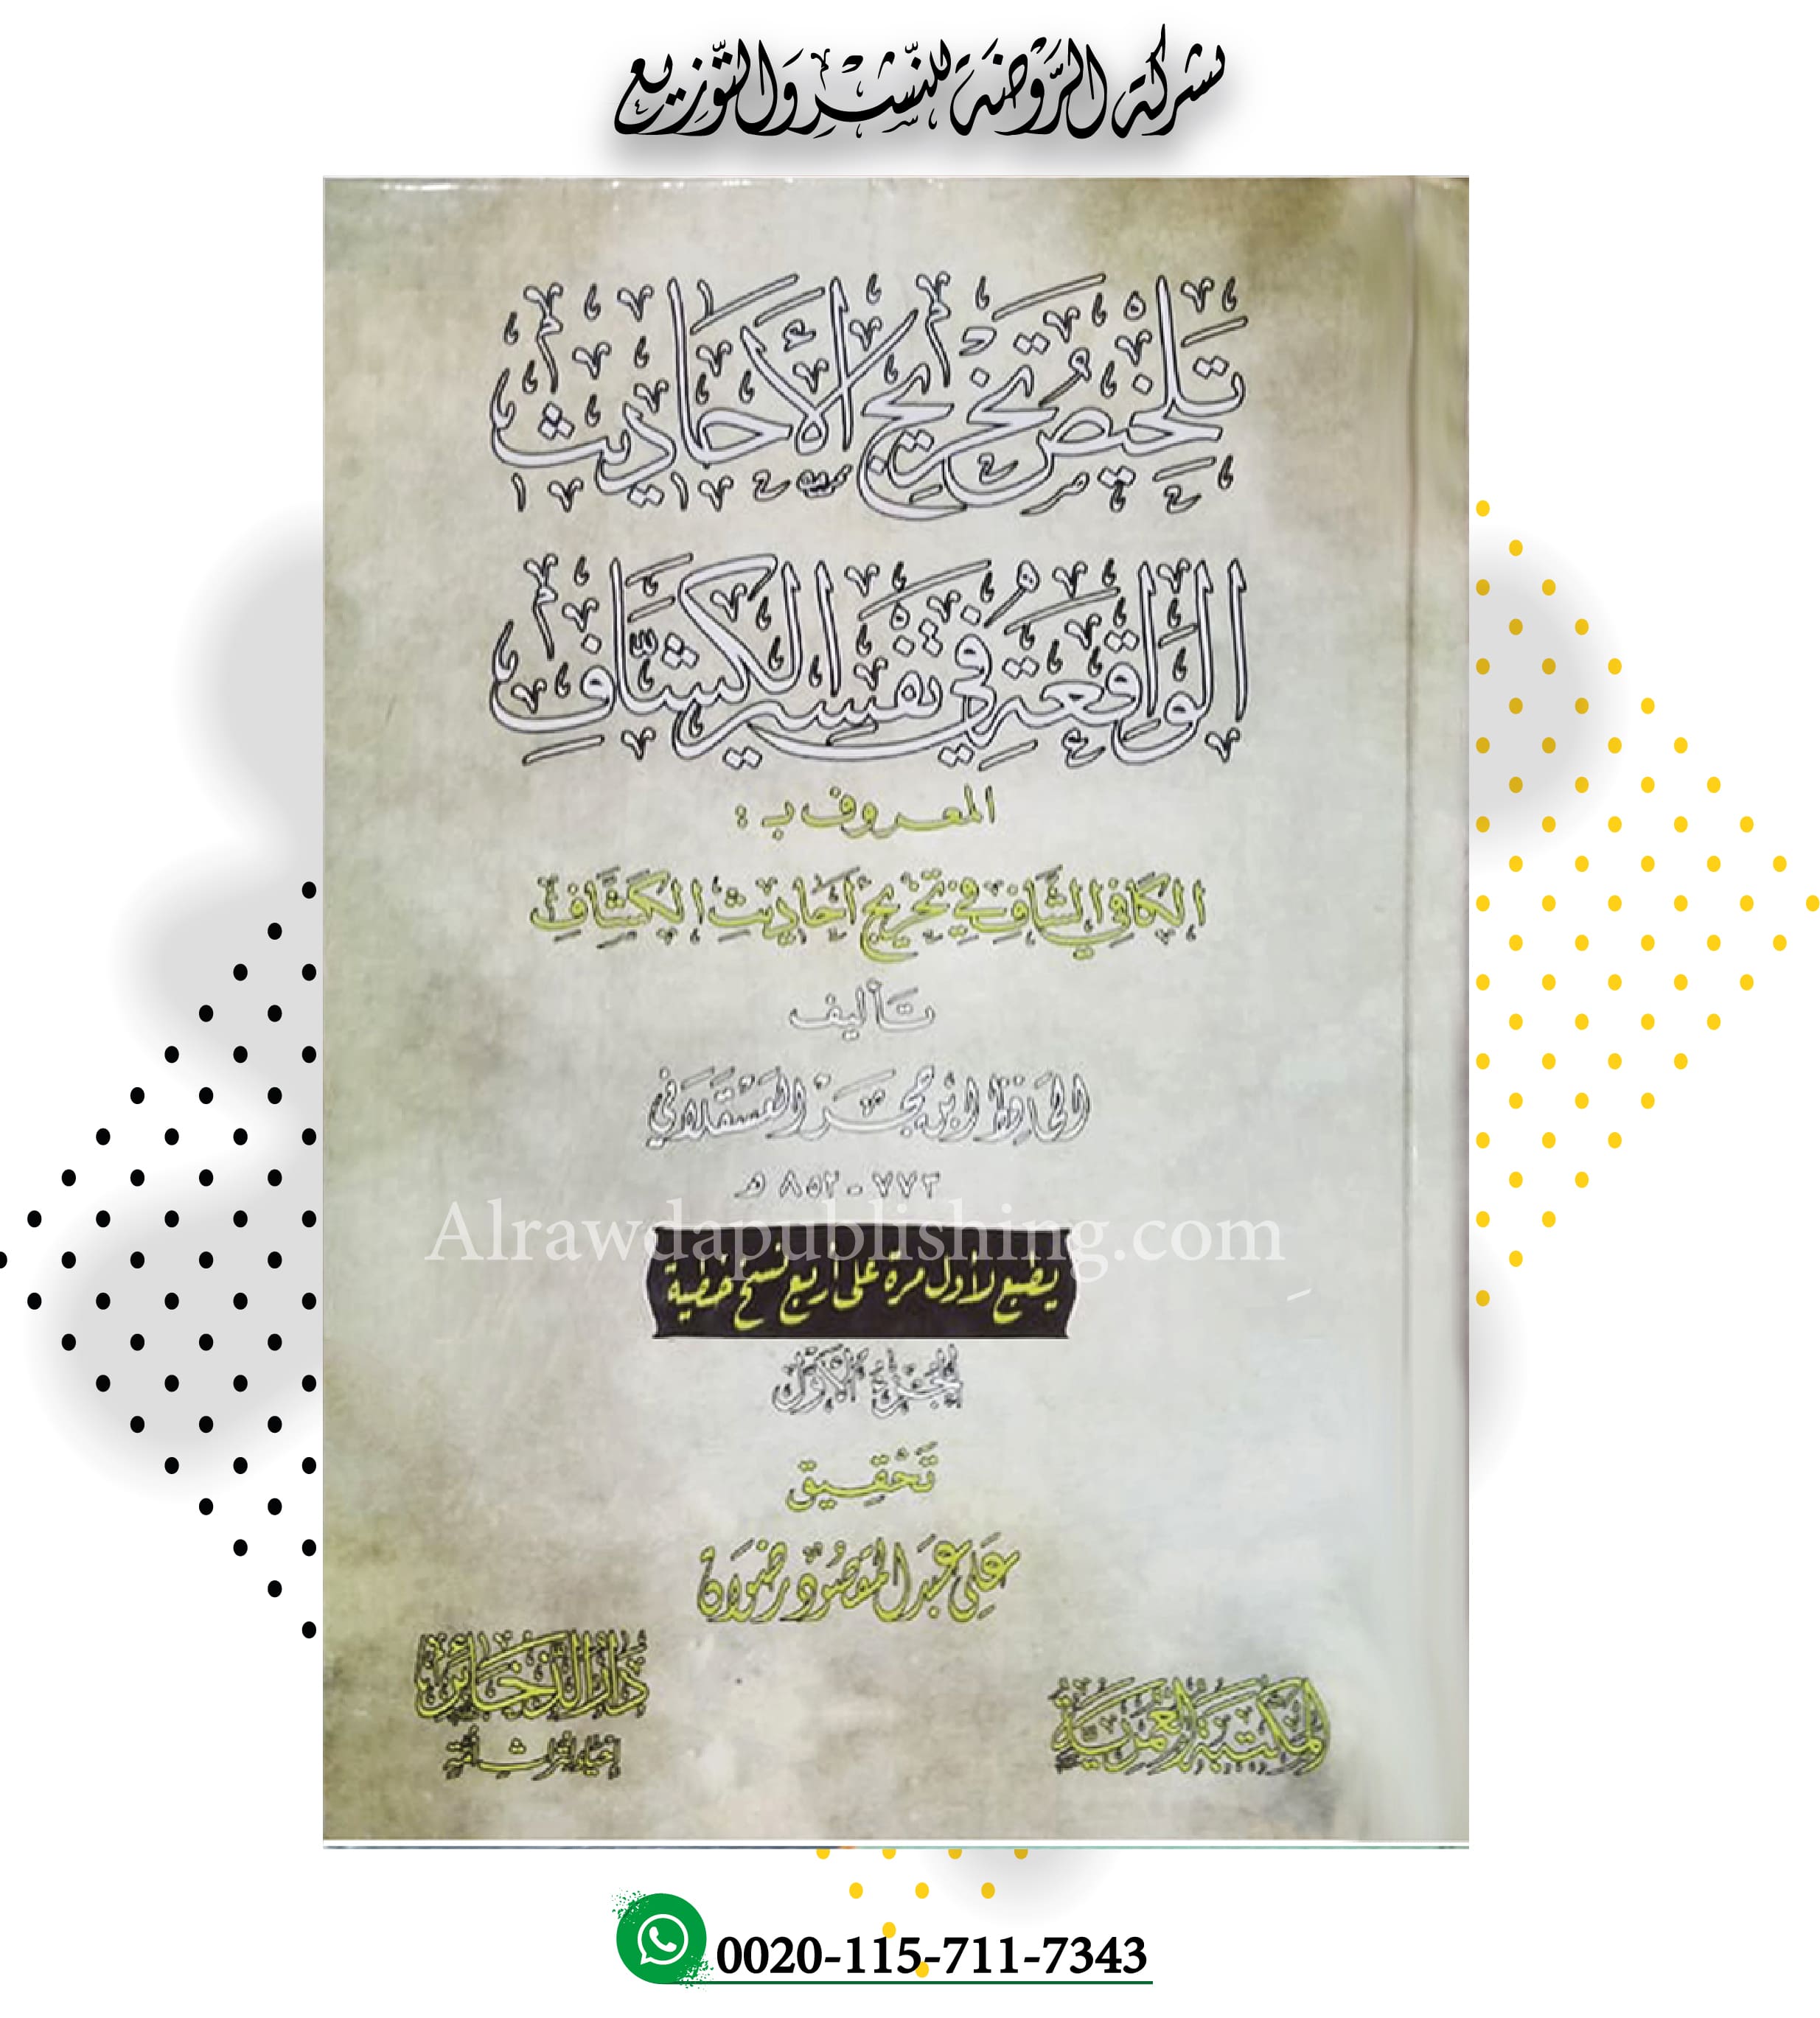 شركة الرَّوْضَة للنَّشْرِ وَالتَّوْزِيع
تَلْخِيصُ تَخْرِيجِ الأَحَادِيثِ
الوَاقِعَةِ فِي تَفْسِيرِ الكَشَّافِ
المعروف بـ :
الكَافِي الشَّافِ فِي تَخْرِيجِ أَحَادِيثِ الكَشَّافِ
تَأليف
الحَافِظ ابن حَجَر العَسْقَلَاني
٧٧٣ - ٨٥٢ هـ
Alrawdapublishing.com
يطبع لأول مرة على أربع نسخ خطية
الجُزْءُ الأَوَّل
تَحْقِيق
عَلِي عَبْد المَقْصُود رضْوَان
المكتبة العمرية
دَارُ الذَّخَائِر
0020-115-711-7343